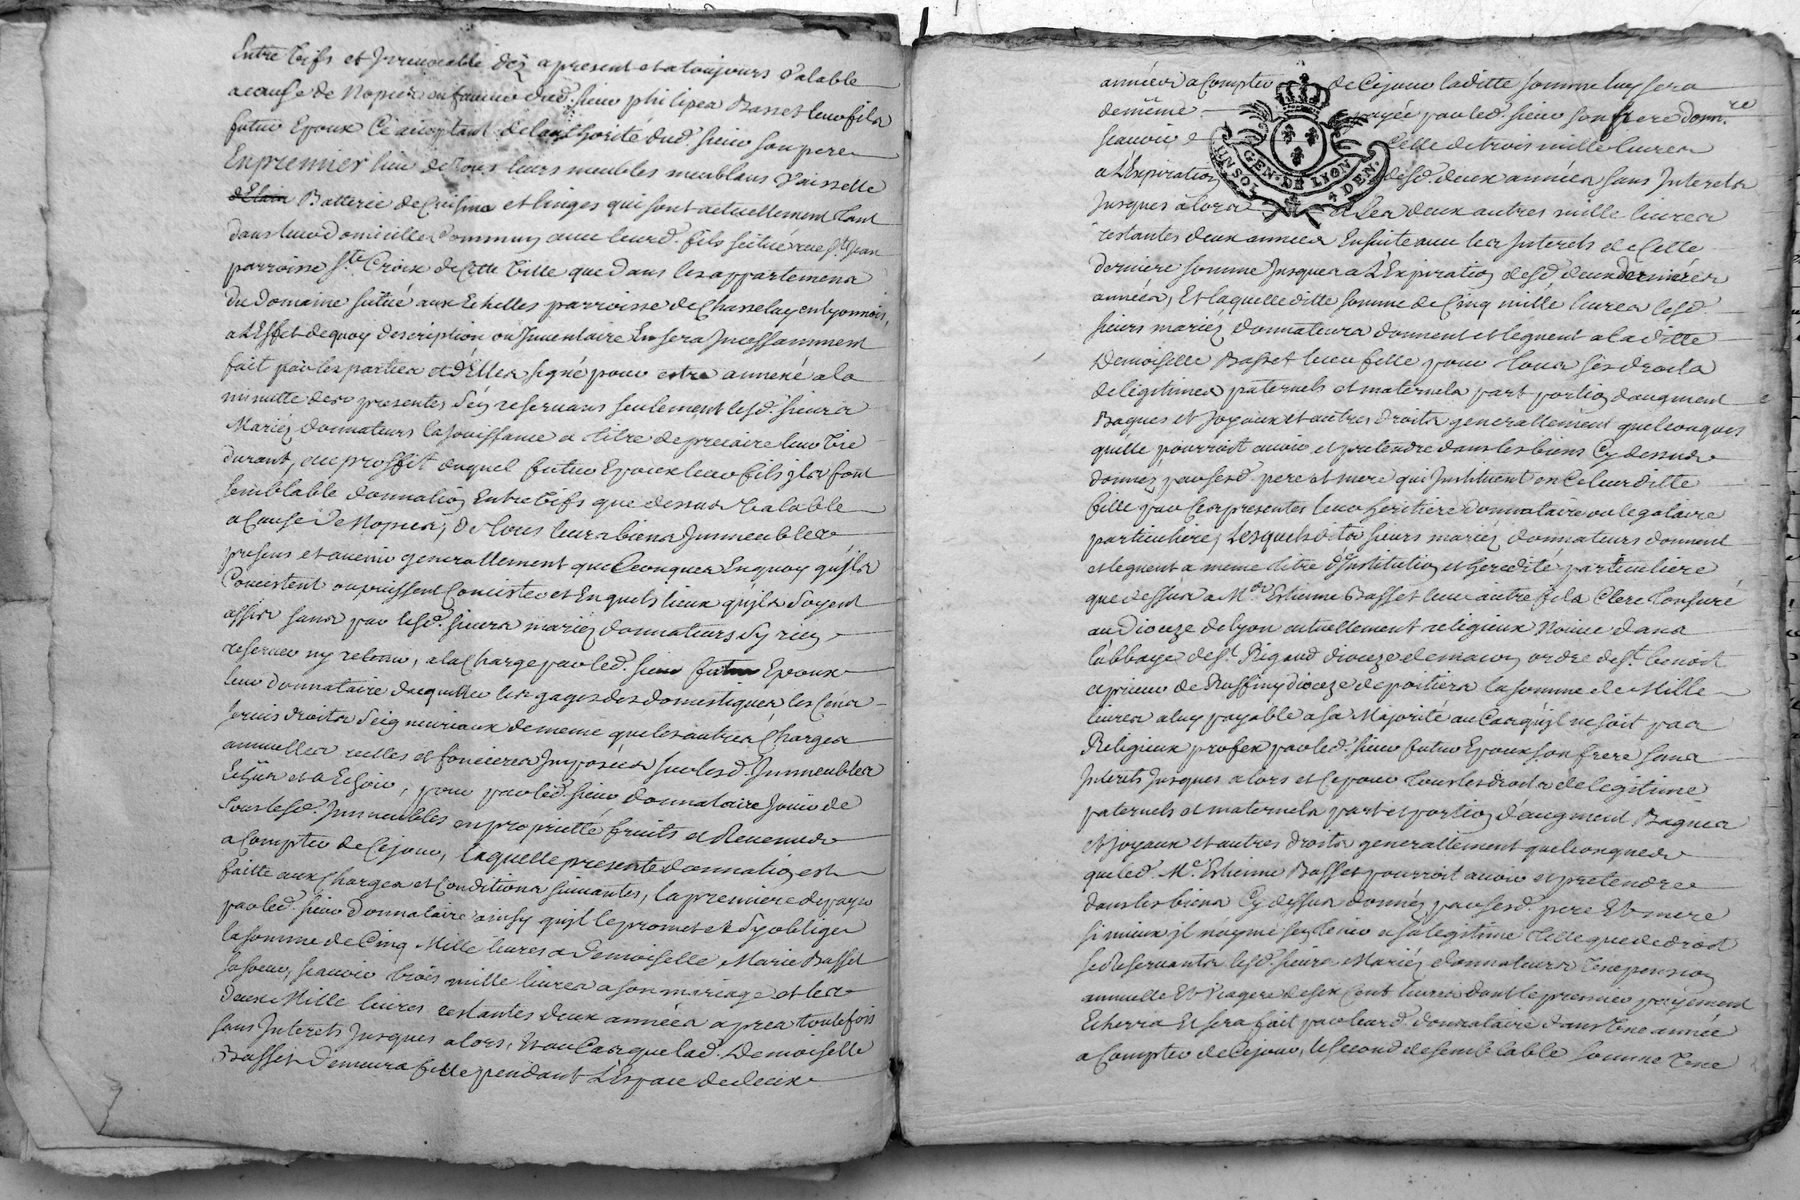 Entre vifs et Irrevocable dez apresent et a toujours valable
acause de Nopces en faveur dud. sieur philipes Basset leur fils
futur Epoux Ce acceptant de lauthorité dud. sieur son pere
En premier lieu de tous leurs meubles meublans Vaisselle
d'Etain Batterie de Cuisine et linges qui sont actuellement tant
dans leur domicille Commun avec leurd. fils scitué rue St. Jean
parroisse Ste. Croix de Cette Ville que dans les appartemens
du domaine scitué aux Echelles parroisse de Chasselay en lyonnois,
a L'Effet dequoy description ou Inventaire En sera Incessamment
fait par les parties et d'Elles signé pour estre annexé a la
minutte des presentes s'en reservans seulement lesd. sieurs
Mariez donnateurs la Jouissance a titre de precaire leur Vie
durant, au proffit duquel futur Epoux leur fils Ils font
semblable donnation Entre Vifs que dessus Valable
a Cause de Nopces, de tous leurs biens Immeubles
presens et avenir generallement quelconques En quoy qu'ils
Concistent ou puissent Concister et En quels lieux qu'ils soyent
assis sans par lesd. sieurs mariez donnateurs s'y rien
reserver ny retenir, a la Charge par led. sieur futur Epoux
leur donnataire d'acquitter les gages des domestiques les Cens
servis droits seigneuriaux de meme que les autres Charges
annuelles reelles et foncieres Imposées sur lesd. Immeubles
Echus et a Echoir, pour par led. sieur donnataire Jouir de
tous lesd. Immeubles en proprietté fruits et Revenus
a Compter de Cejour, laquelle presente donnation est
faitte aux Charges et Conditions suivantes, la premiere de payer
par led. sieur donnataire ainsy qu'il le promet et s'y oblige
la somme de Cinq Mille livres a Demoiselle Marie Basset
sa soeur, scavoir trois mille livres a son mariage et les
deux Mille livres restantes deux années apres toutefois
sans Interets Jusques alors, et au Cas que lad. Demoiselle
Basset demeura fille pendant L'Espace de deux
années a Compter de Cejour laditte somme luy sera
de même payée par led. sieur son frere donn.re
scavoir Celle de trois mille livres
a L'Expiration desd. deux années sans Interets
Jusques alors et Les deux autres mille livres
restantes deux années Ensuite avec les Interets de Cette
derniere somme Jusques a L'Expiration desd. deux dernieres
années, Et laquelle ditte somme de Cinq mille livres lesd.
sieurs mariez donnateurs donnent et leguent a la ditte
Demoiselle Basset leur fille pour tous ses droits
de legitimes paternels et maternels part portion d'augment
Bagues et Joyaux et autres droits generallement quelconques
qu'elle pourroit avoir et pretendre dans les biens Cy dessus
donnez par sesd. pere et mere qui Instituent en Ce leur ditte
fille par Ces presentes leur heritiere donnataire ou legataire
particuliere, Lesquels dits sieurs mariez donnateurs donnent
et leguent a meme titre d'Institution et heredité particuliere
que dessus a Me. Estienne Basset leur autre fils Clerc tonsuré
au Dioceze de lyon actuellement religieux Novice dans
labbaye de St. Rigaud dioceze de macon ordre de St. benoit
et prieur de Ruffiny dioceze de poitiers la somme de Mille
livres a luy payable a sa Majorité au Cas qu'il ne soit pas
Religieux profex par led. sieur futur Epoux son frere sans
Interets Jusques alors et Ce pour tous les droits de legitime
paternels et maternels part et portion d'augment Bagues
et Joyaux et autres droits generallement quelconques
que led. Me. Estienne Basset pourroit avoir et pretendre
dans les biens Cy dessus donnés par sesd. pere Et mere
si mieux Il n'ayme s'en tenir a sa legitime telle que de droit
se Reservants lesd. sieurs Mariez donnateurs Une pension
annuelle Et Viagere de six Cent livres dont le premier payement
Echerra Et sera fait par leurd. donnataire dans Une année
a Compter de Cejour, le second de semblable somme Une
GEN. DE LYON
UN SOL 4 DEN.